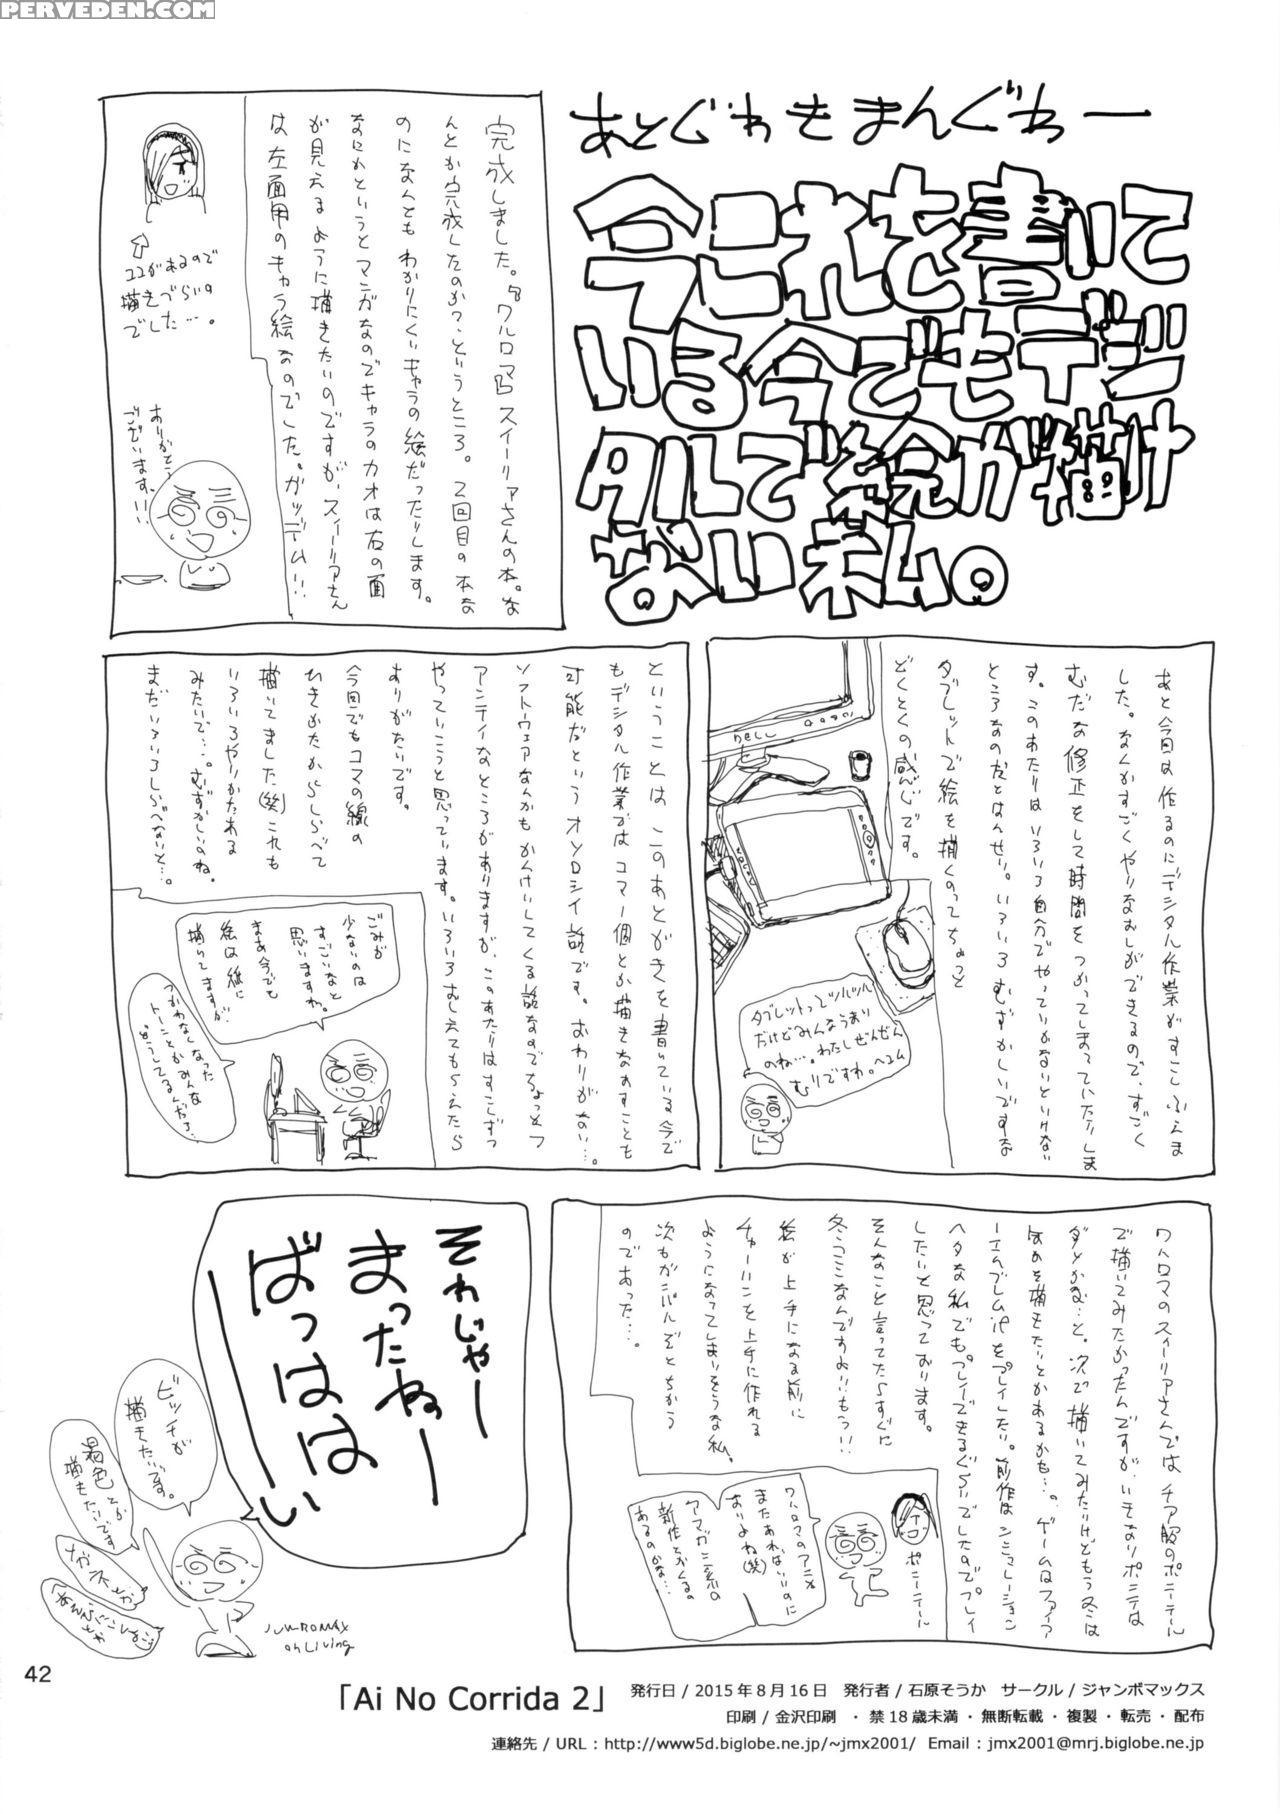 PERVEDEN.COM
あとぐわもまんぐわー
今これを書いて
いる今でもデジ
タルで絵が描け
ない私。
完成しました。『ワルロマ』スイーリアさんの本。な
んとか完成したのか?というところ。2回目の本な
のになんともわかりにくいキャラの絵だったりします。
なにかというとマンガなのでキャラのカオは右の面
が見えるように描きたいのですが、スイーリアさん
は左面用のキャラ絵なのでした。ガッデーム!!
ココがあるので
描きづらいの
でした…。
ありがとう
ございます!!
あと今回は作るのにデジタル作業がすこしふえま
した。なんかすごくやりなおしができるので、すごく
むだな修正をして時間をつかってしまっていたりしま
す。このあたりはいろいろ自分でやっていかないといけない
ところなのだとはんせい。いろいろむずかしいですな
タブレットで絵を描くのってちょっと
どくとくの感じです。
DELL
タブレットってツルツル
だけどみんなうまい
のね…。わたしぜんぜん
むりですわ。ヘコム
ということはこのあとがきを書いている今で
もデジタル作業ではコマ一個とか描きなおすことも
可能だというオソロシイ話です。おわりがない…。
ソフトウェアなんかもかんけいしてくる話なのでちょっとフ
アンティなところがありますが、このあたりはすこしずつ
やっていこうと思っています。いろいろおしえてもらえたら
ありがたいです。
今回でもコマの線の
ひきかたからしらべて
描いてました(笑)これも
いろいろやりかたある
みたいで…。むずかしいのね。
まだいろいろしらべないと…。
ごみが
少ないのは
すごいなと
思いますね。
まあ今でも
絵は紙に
描いてますが
つかわなくなった
トーンとかみんな
どうしてるんだろ…
ワルロマのスイーリアさんではチア服のポニーテール
で描いてみたかったんですが、いきなりポニテは
ダメかな…と。次で描いてみたいけどもう冬は
なのを描きたいとかあるかも…。ゲームはファイア
ーエムブレムifをプレイしたい。前作はシミュレーション
ヘタな私でもプレイできるぐらいでしたのでプレイ
したいと思っております。
そんなこと言ってたらすぐに
冬コミなんですよ!!もう!!
絵が上手になる前に
チャーハンを上手に作れる
ようになってしまいそうな私。
次もガンバルぞとちかう
のであった…。
ポニーテール
ワルロマのアニメ
またあればいいのに
おりよね(笑)
アマガミ系の
新作とかくるの
あるのかな…
それじゃー
まったねー
ばっははーい
ビッチが
描きたいです。
褐色とか
描きたいです
メガネとか
JUMBOMAX
on Living
42
「Ai No Corrida 2」
発行日 / 2015年8月16日　発行者 / 石原そうか　サークル / ジャンボマックス
印刷 / 金沢印刷　・禁18歳未満・無断転載・複製・転売・配布
連絡先 / URL : http://www5d.biglobe.ne.jp/~jmx2001/　Email : jmx2001@mrj.biglobe.ne.jp